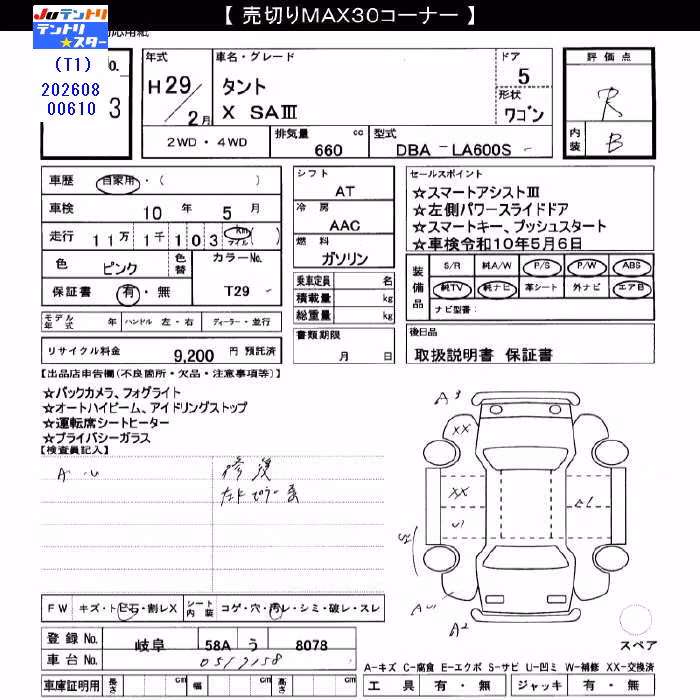 【 売切りMAX30コーナー 】
Juテントリ
テントリ★スター
応用紙
(T1)
202608
00610
No.
3
年式
H29/2月
車名・グレード
タント
X SAⅢ
ドア
5
形状
ワゴン
評価点
R
内装
B
2WD・4WD
排気量 cc
660
型式
DBA - LA600S -
車歴 自家用・( )
車検 10年 5月
走行 11万1千103 Km マイル ( )
色 ピンク 色替 カラーNo.
保証書 有・無 T29 -
モデル年式 年 ハンドル 左・右 ディーラー・並行
リサイクル料金 9,200 円 預託済
シフト
AT
冷房
AAC
燃料
ガソリン
乗車定員 名
積載量 kg
総重量 kg
書類期限
月 日
セールスポイント
☆スマートアシストⅢ
☆左側パワースライドドア
☆スマートキー、プッシュスタート
☆車検令和10年5月6日
装備品
S/R 純A/W P/S P/W ABS
純TV 純ナビ 革シート 外ナビ エアB
ナビ型番:
後日品
取扱説明書 保証書
【出品店申告欄(不良箇所・欠品・注意事項等)】
☆バックカメラ、フォグライト
☆オートハイビーム、アイドリングストップ
☆運転席シートヒーター
☆プライバシーガラス
【検査員記入】
A・U 修復
A3
XX
XX
A2
FW キズ・トビ石・割レX シート内装 コゲ・穴・汚レ・シミ・破レ・スレ
登録No. 岐阜 58A う 8078
車台No. 0517158
スペア
A-キズ C-腐食 E-エクボ S-サビ U-凹ミ W-補修 XX-交換済
車庫証明用 長さ cm 幅 cm 高さ cm
工具 有・無 ジャッキ 有・無